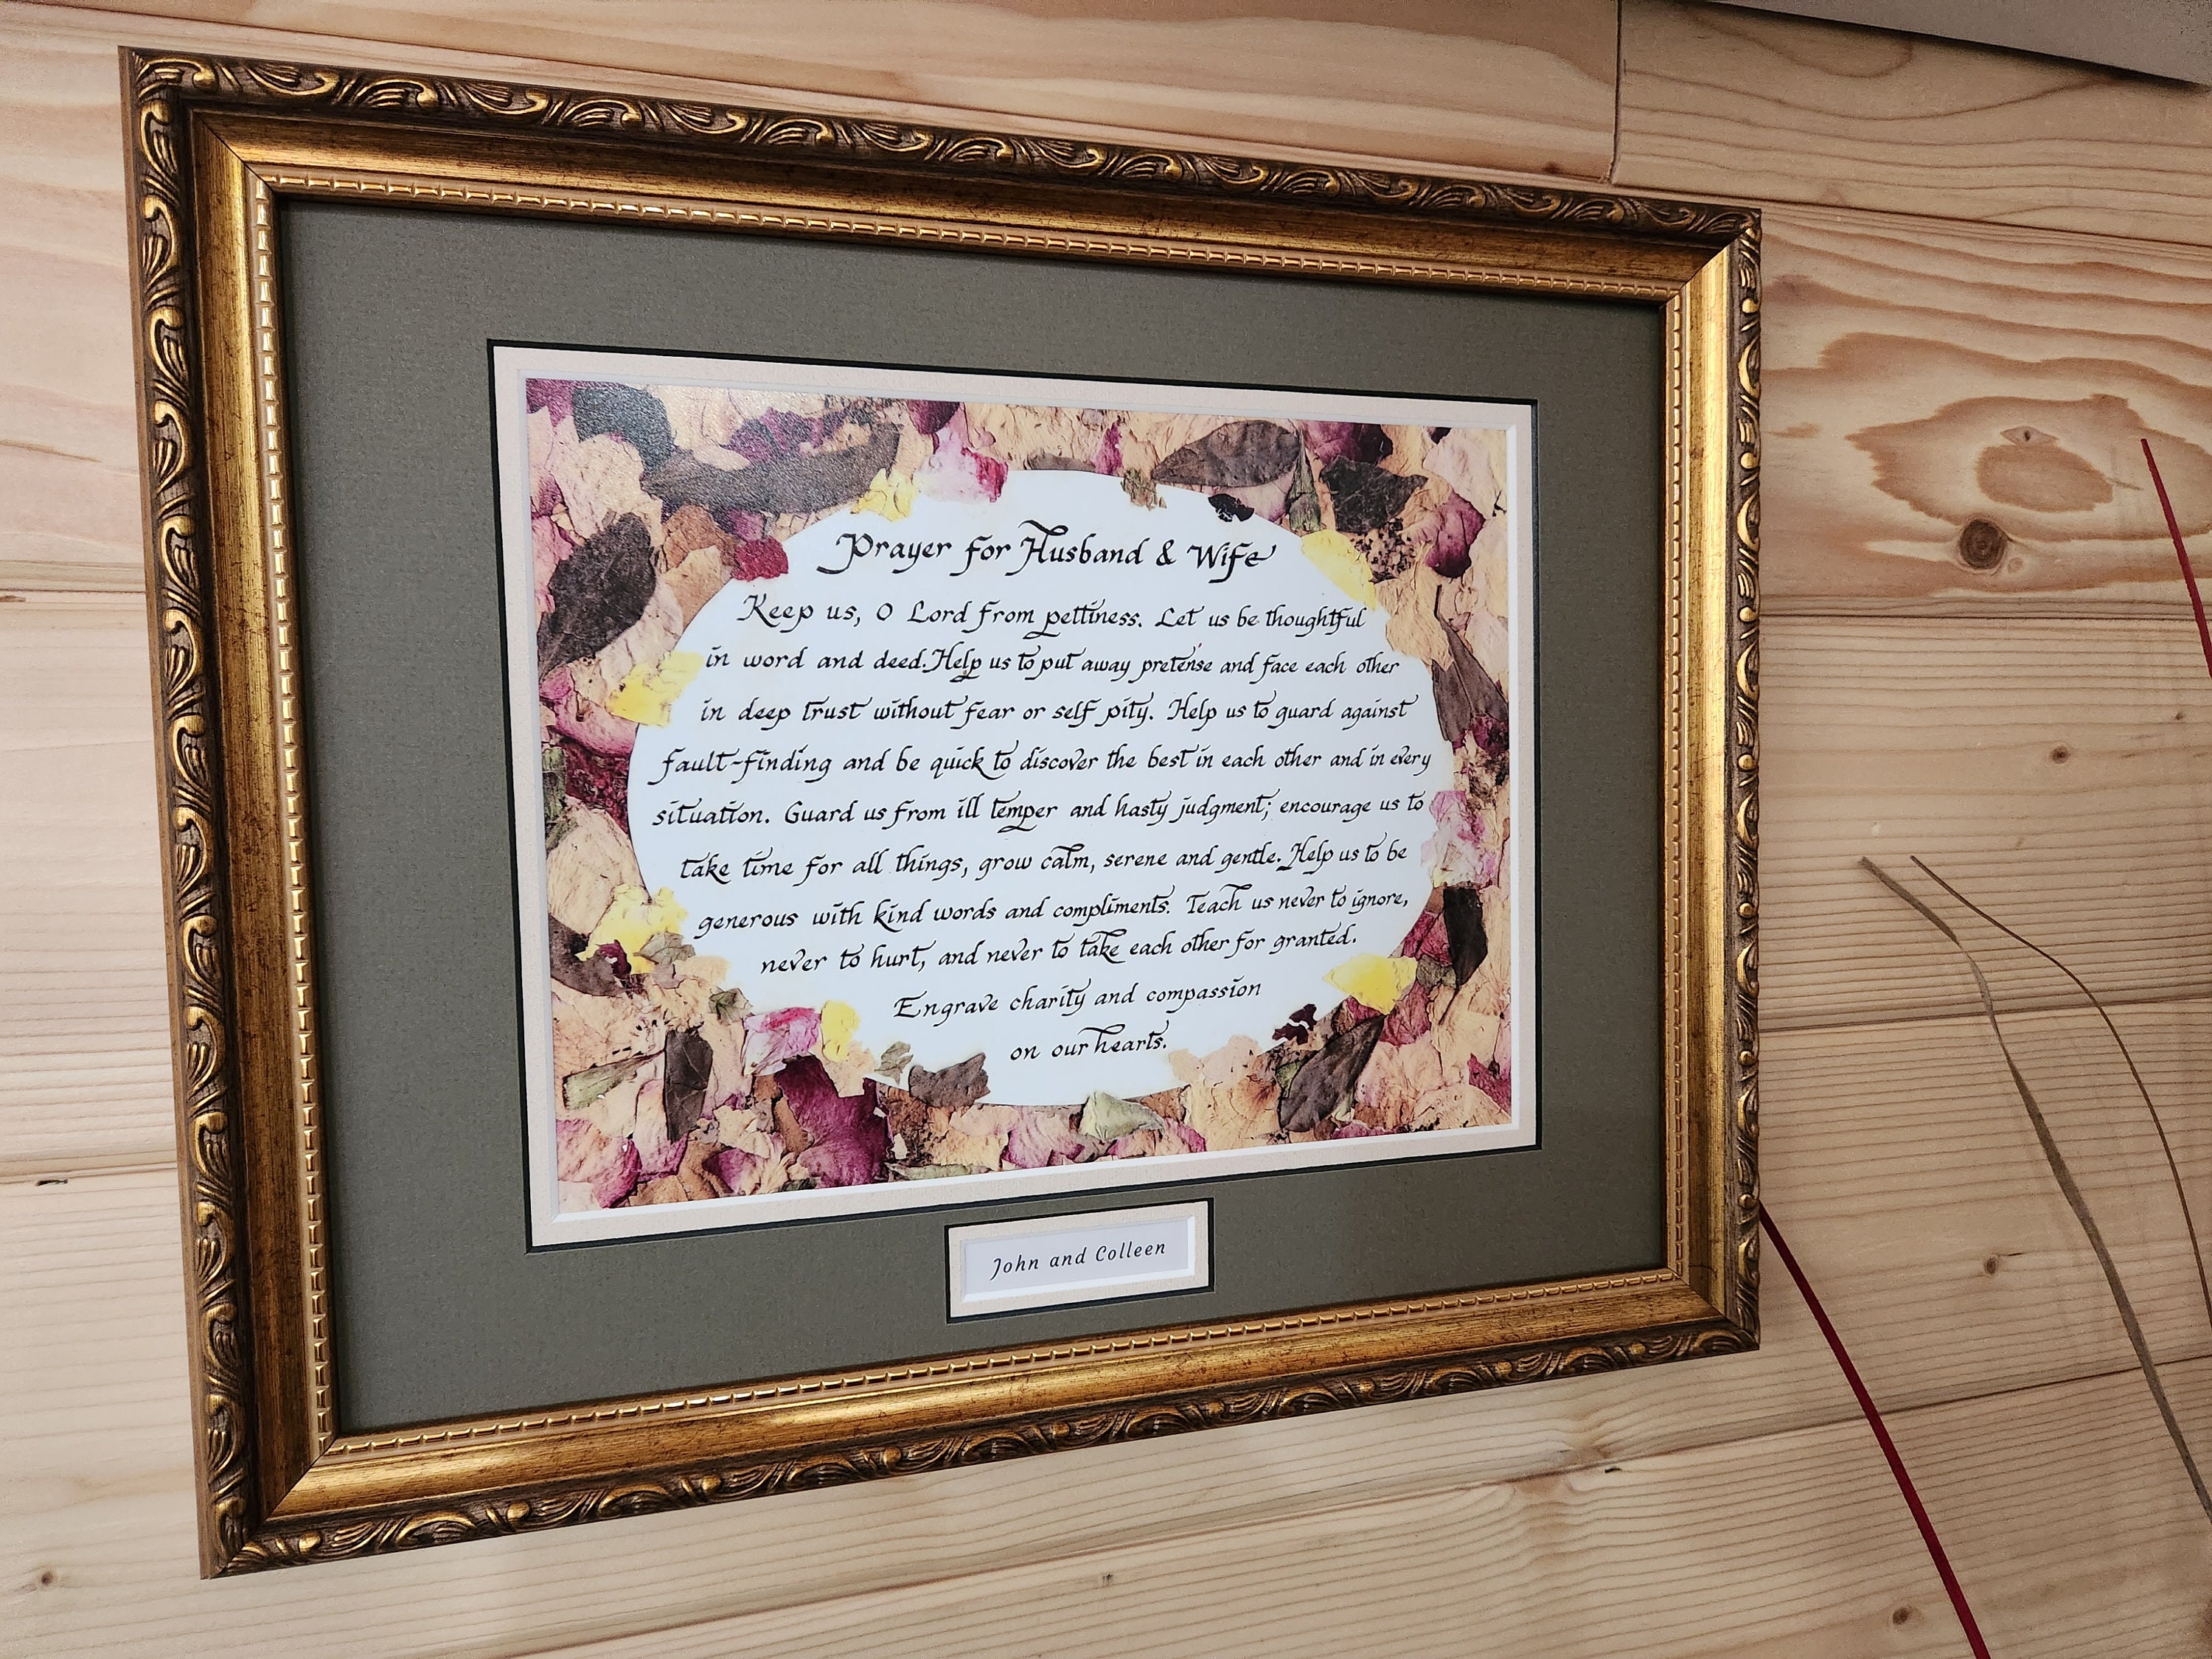 Prayer for Husband & Wife
Keep us, O Lord from pettiness. Let us be thoughtful
in word and deed. Help us to put away pretense and face each other
in deep trust without fear or self pity. Help us to guard against
fault-finding and be quick to discover the best in each other and in every
situation. Guard us from ill temper and hasty judgment; encourage us to
take time for all things, grow calm, serene and gentle. Help us to be
generous with kind words and compliments. Teach us never to ignore,
never to hurt, and never to take each other for granted.
Engrave charity and compassion
on our hearts.
John and Colleen